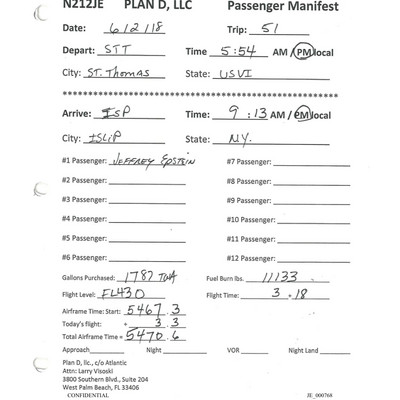 N212JE PLAN D, LLC Passenger Manifest
Date: 6/2/18 Trip: 51
Depart: STT Time 5:54 AM / PM local
City: ST. THOMAS State: USVI
**********************************************************************
Arrive: ISP Time: 9:13 AM / PM local
City: ISLIP State: N.Y.
#1 Passenger: JEFFREY EPSTEIN #7 Passenger:
#2 Passenger: #8 Passenger:
#3 Passenger: #9 Passenger:
#4 Passenger: #10 Passenger:
#5 Passenger: #11 Passenger:
#6 Passenger: #12 Passenger:
Gallons Purchased: 1787 Fuel Burn lbs. 11133
Flight Level: FL430 Flight Time: 3.18
Airframe Time: Start: 5467.3
Today's flight: + 3.3
Total Airframe Time = 5470.6
Approach Night VOR Night Land
Plan D, llc., c/o Atlantic
Attn: Larry Visoski
3800 Southern Blvd., Suite 204
West Palm Beach, FL 33406
CONFIDENTIAL JE_000768